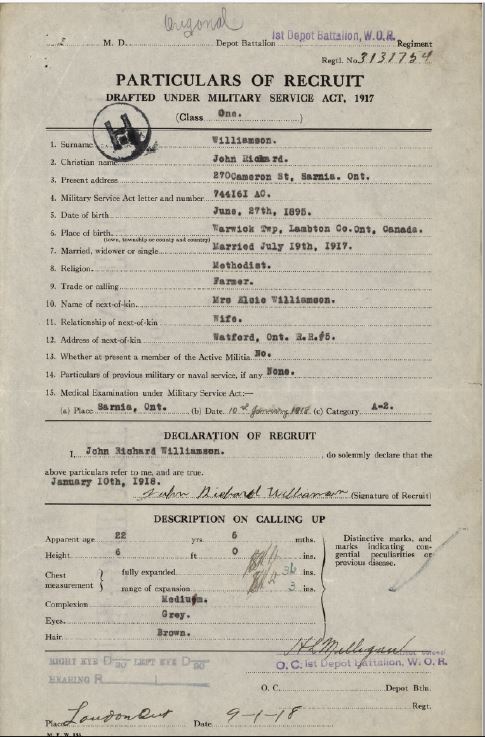 Original
2 M. D. Depot Battalion 1st Depot Battalion, W.O.R. Regiment
Regtl. No. 3131754
PARTICULARS OF RECRUIT
DRAFTED UNDER MILITARY SERVICE ACT, 1917
(Class One. )
1. Surname Williamson.
2. Christian name John Rickard.
3. Present address 270Cameron St, Sarnia. Ont.
4. Military Service Act letter and number 744161 AC.
5. Date of birth June, 27th, 1895.
6. Place of birth Warwick Twp, Lambton Co.Ont, Canada.
(town, township or county and country)
7. Married, widower or single Married July 19th, 1917.
8. Religion Methodist.
9. Trade or calling Farmer.
10. Name of next-of-kin Mrs Elsie Williamson.
11. Relationship of next-of-kin Wife.
12. Address of next-of-kin Watford, Ont. R.R.#5.
13. Whether at present a member of the Active Militia No.
14. Particulars of previous military or naval service, if any None.
15. Medical Examination under Military Service Act:—
(a) Place Sarnia, Ont. (b) Date 10th January 1918 (c) Category A-2.
DECLARATION OF RECRUIT
I, John Richard Williamson. , do solemnly declare that the
above particulars refer to me, and are true.
January 10th, 1918.
John Richard Williamson (Signature of Recruit)
DESCRIPTION ON CALLING UP
Apparent age 22 yrs. 6 mths.
Height 6 ft 0 ins.
Chest measurement
fully expanded 36 ins.
range of expansion 3 ins.
Complexion Medium.
Eyes Grey.
Hair Brown.
Distinctive marks, and
marks indicating con-
genital peculiarities or
previous disease.
H L Milligan
O. C. 1st Depot Battalion, W. O. R.
RIGHT EYE D 20 LEFT EYE D 20
HEARING R L
O. C. Depot Batln.
Regt.
Place London Ont Date 9-1-18